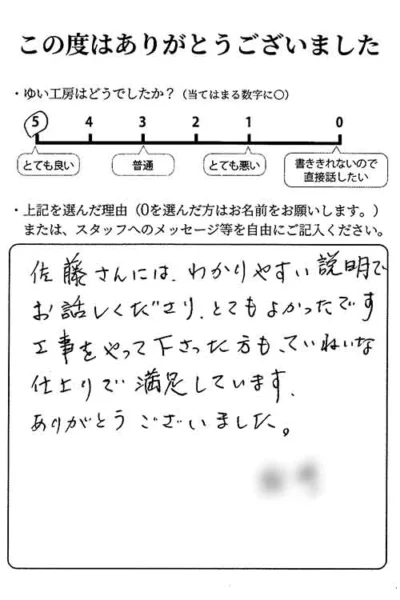 この度はありがとうございました
・ゆい工房はどうでしたか？（当てはまる数字に〇）
5 4 3 2 1 0
とても良い 普通 とても悪い 書ききれないので
直接話したい
・上記を選んだ理由（0を選んだ方はお名前をお願いします。）
または、スタッフへのメッセージ等を自由にご記入ください。
佐藤さんには、わかりやすい説明で
お話しくださり、とてもよかったです
工事をやって下さった方も、ていねいな
仕上りで満足しています、
ありがとうございました。